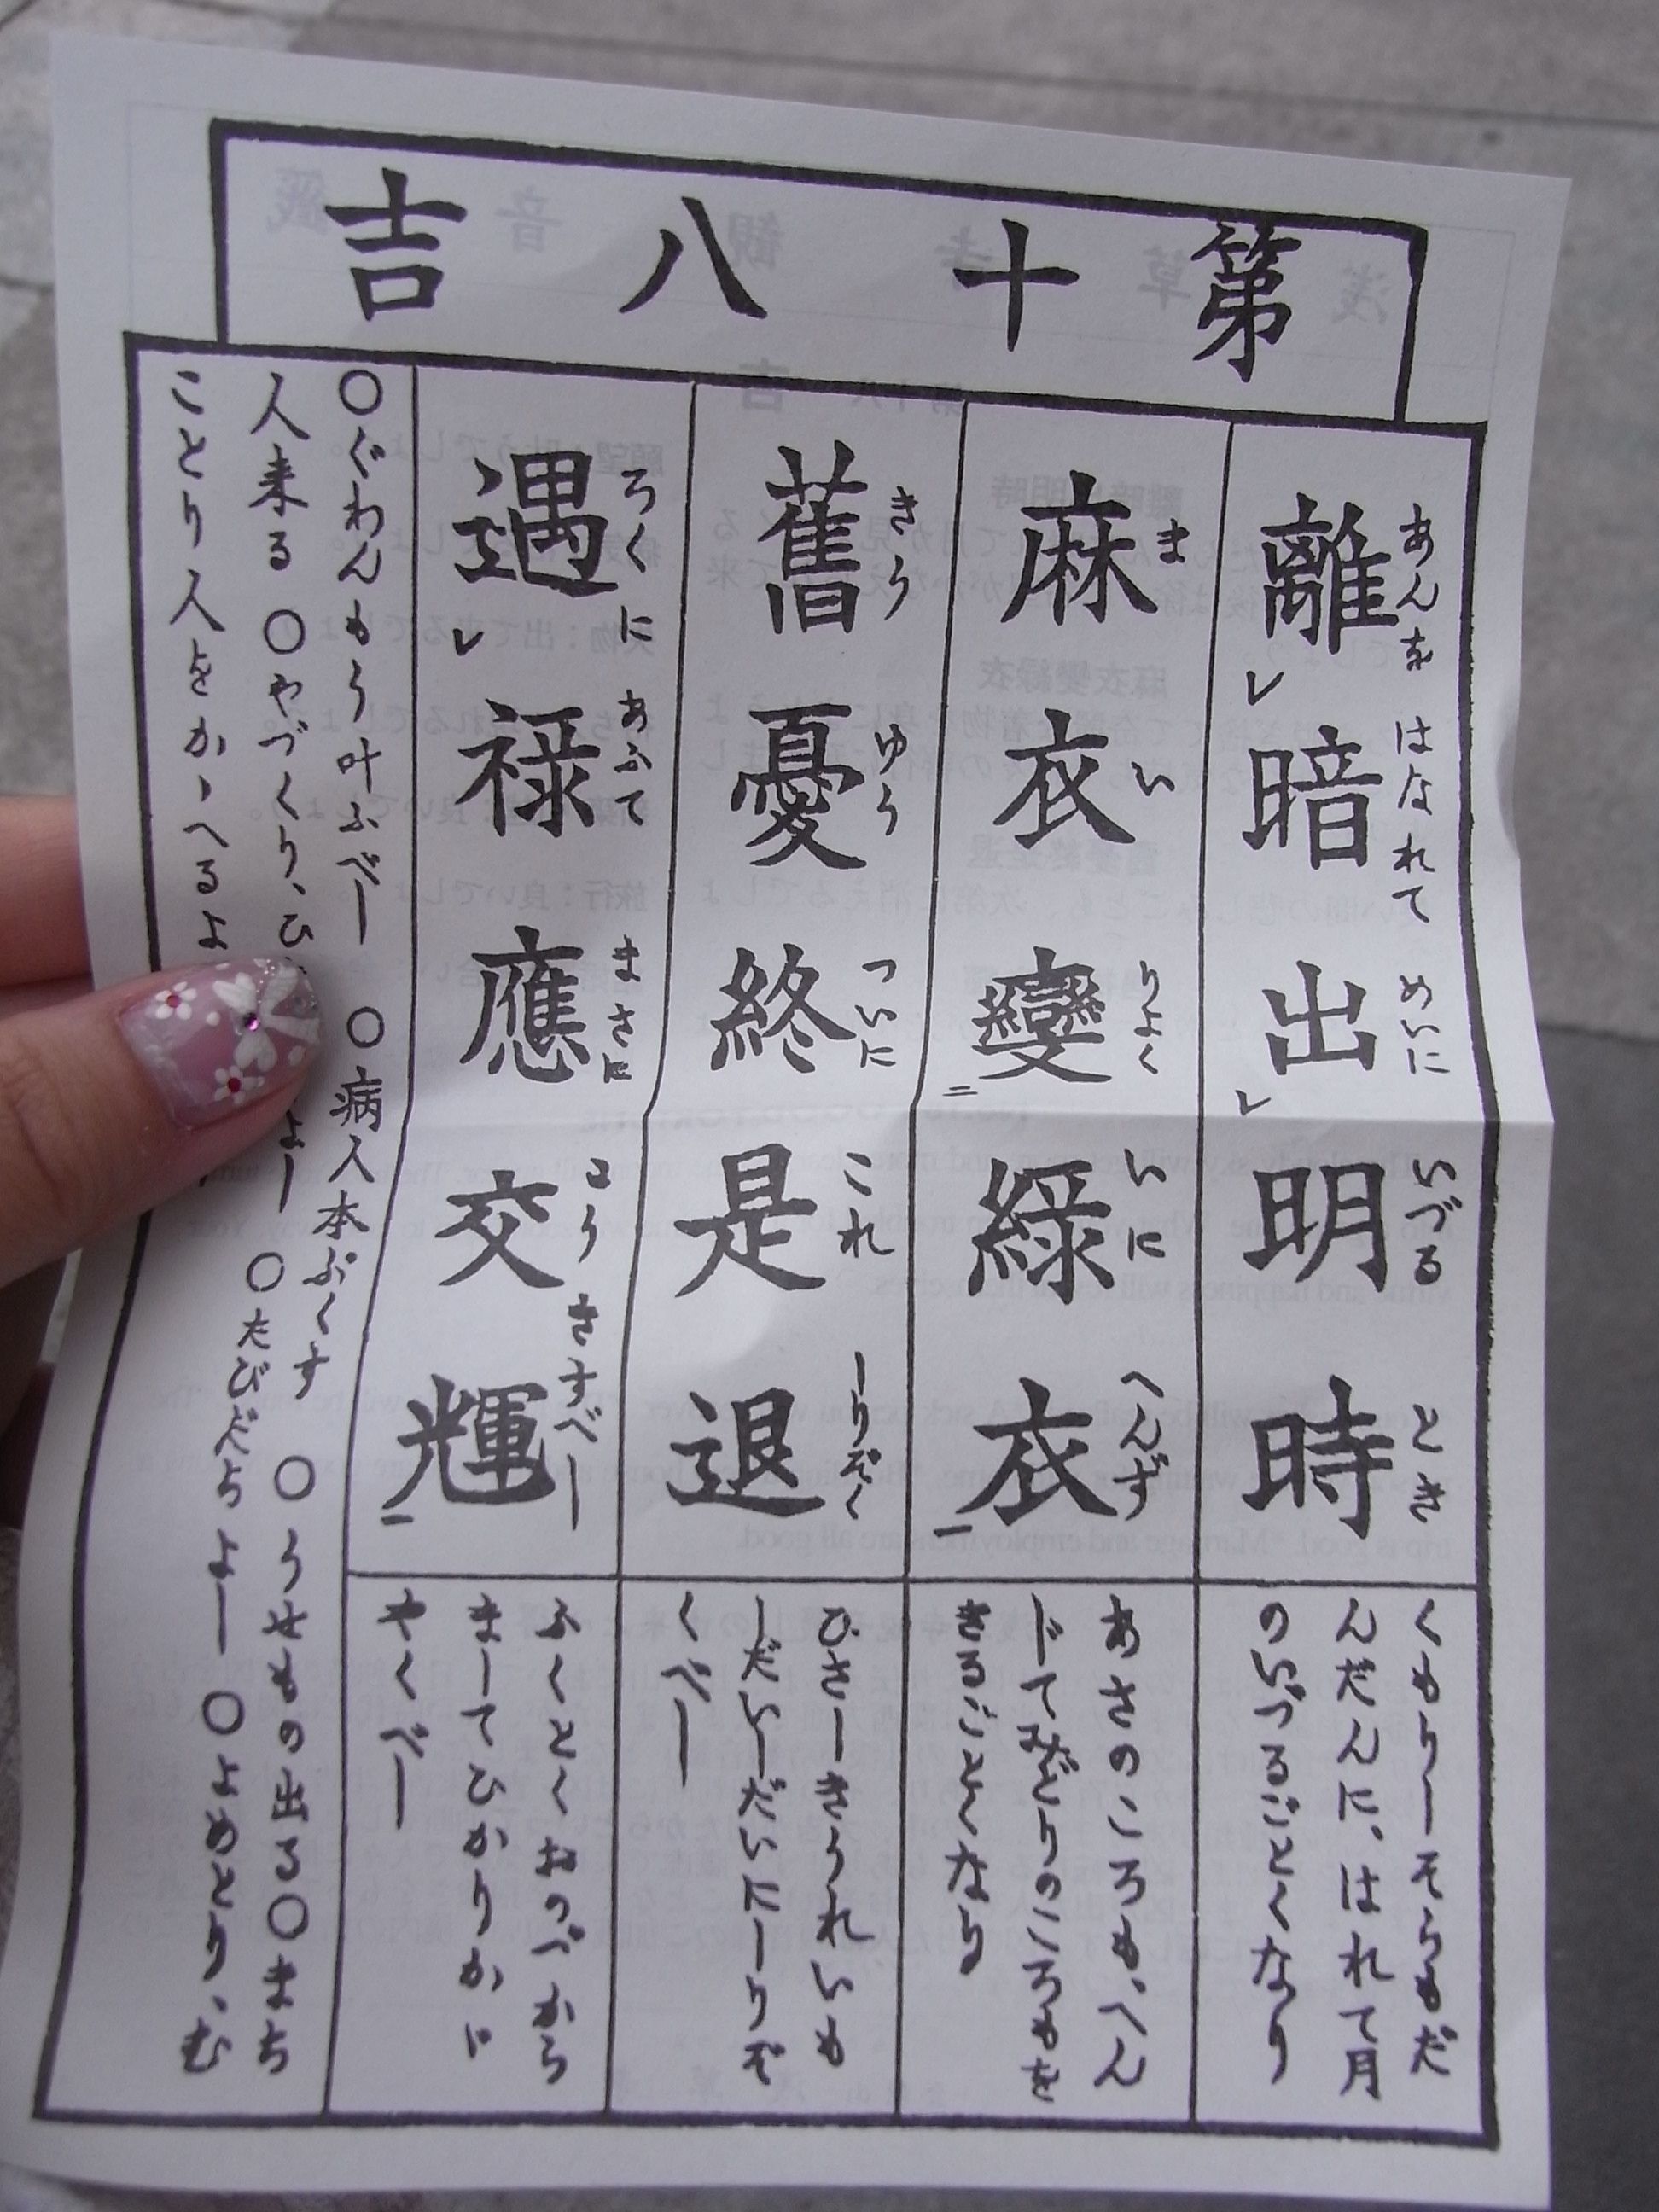 第十八吉
離暗出明時
あんを はなれて めいに いづる とき
くもりしそらもだ
んだんに、はれて月
のいづるごとくなり
麻衣變綠衣
ま い りよく いに へんず
あさのころも、へん
じてみどりのころもを
きるごとくなり
舊憂終是退
きう ゆう ついに これ しりぞく
ひさしきうれいも
しだいしだいにしりぞ
くべし
遇禄應交輝
ろくに あふて まさに こう きすべし
ふくとくおのづから
ましてひかりかゞ
やくべし
○ぐわんもう叶ふべし ○病人本ぶくす ○うせもの出る○まち
人来る ○やづくり、ひ よし ○たびだちよし ○よめとり、む
ことり人をかゝへるよ